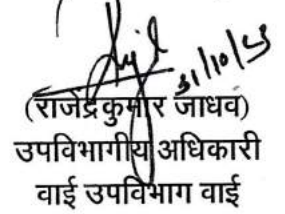 31/10/23
(राजेंद्रकुमार जाधव)
उपविभागीय अधिकारी
वाई उपविभाग वाई